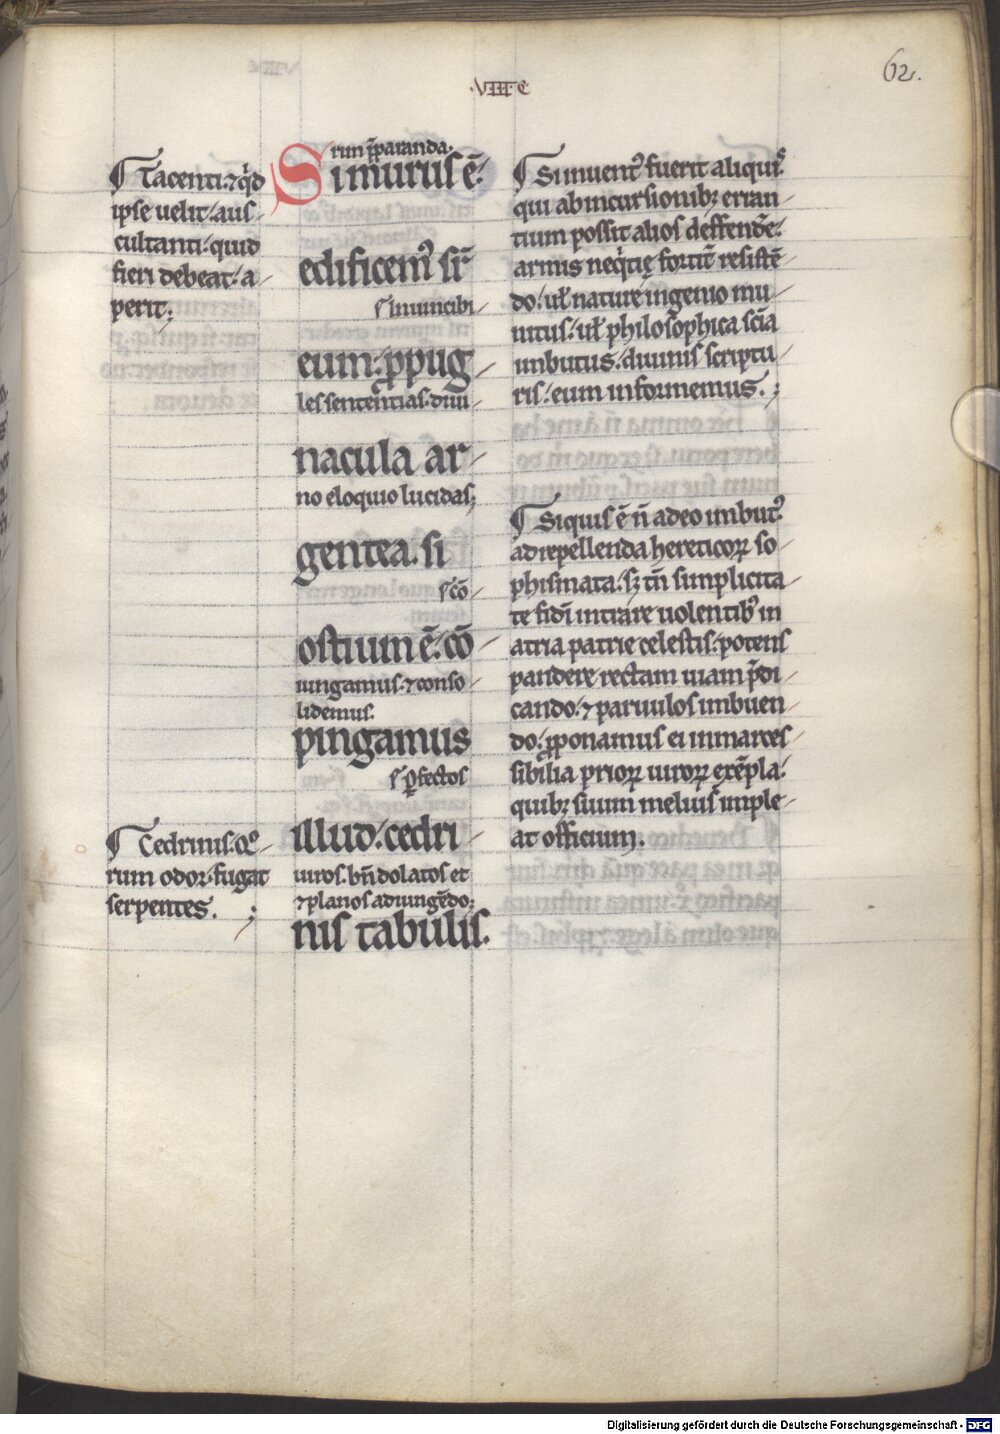 ·VIIII· C
62.
¶ Tacenti.⁊ qd̕
ipse uelit. aus/
cultanti. quid
fieri debeat. a/
perit;
¶ Cedrinis. qͦ/
rum odor fugat
serpentes. ;
Si murus ē.
edificem᷒ sr̄
s. inuincibi/
eum: ꝓpug/
les sententias. diui/
nacula ar/
no eloquio lucidas;
gentea. si
s. cō/
ostium ē. cō/
iungamus. ⁊ conso/
lidemus.
pingamus
s. ꝑfectos
illud. cedri/
uiros. bn̄ dolatos et
⁊ planos adiungēdo;
nis tabulis.
¶ Si inuent᷒ fuerit aliqui᷒
qui ab incursionibꝫ erran/
tium possit alios deffendē.
armis neq̇tię fortit̄ resistē/
do. uł nature ingenio mu/
nitus. uł philosophica sciā
imbutus. diuinis scriptu/
ris. eum informemus. ;
¶ Siquis ē n̄ adeo imbut᷒
ad repellenda hereticoꝝ so/
phismata. sꝫ tn̄ simplicita/
te fidi intrare uolentibꝰ in
atria patrie celestis. potens
pandere rectam uiam p̄di/
cando. ⁊ paruulos imbuen/
do. ꝓponamus ei inmarces/
sibilia prioꝝ uiroꝝ exēpla.
quibꝫ suum melius imple/
at officium.
Digitalisierung gefördert durch die Deutsche Forschungsgemeinschaft - DFG